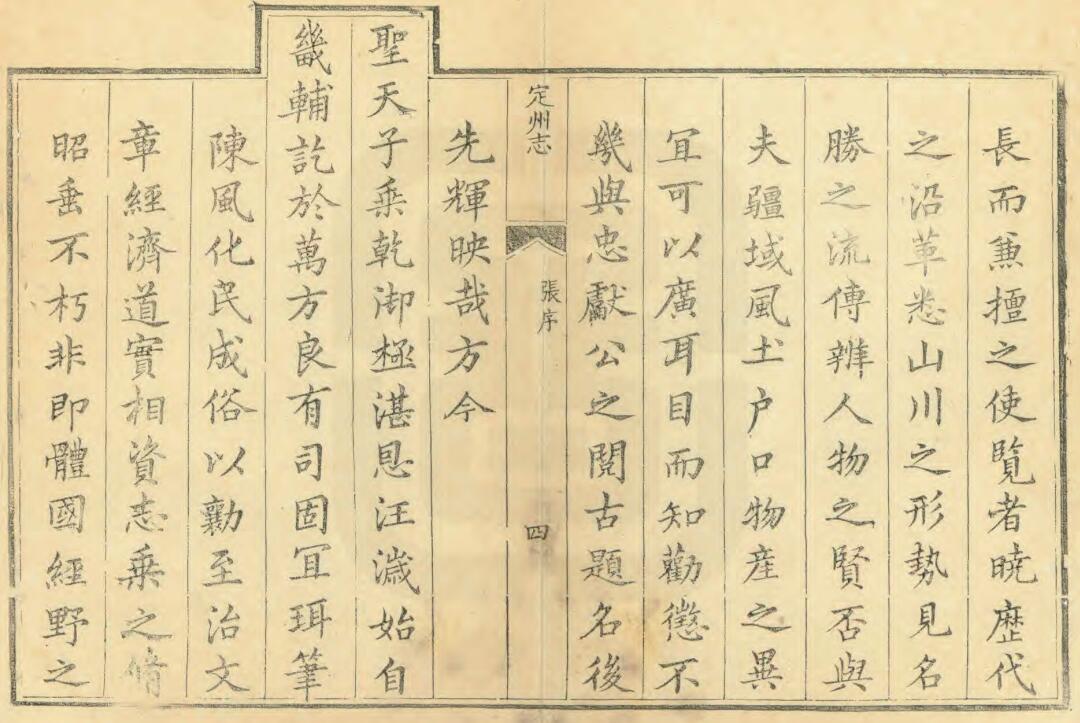 長而兼擅之使覽者曉歴代
之沿革悉山川之形勢見名
勝之流傳辨人物之賢否與
夫疆域風土户口物産之異
宜可以廣耳目而知勸懲不
㡬與忠獻公之閱古題名後
定州志
張序
四
先輝映哉方今
聖天子乘乾御極湛恩汪濊始自
畿輔訖於萬方良有司固宜珥筆
陳風化民成俗以勷至治文
章經濟道實相資志乘之脩
昭垂不朽非即體國經野之